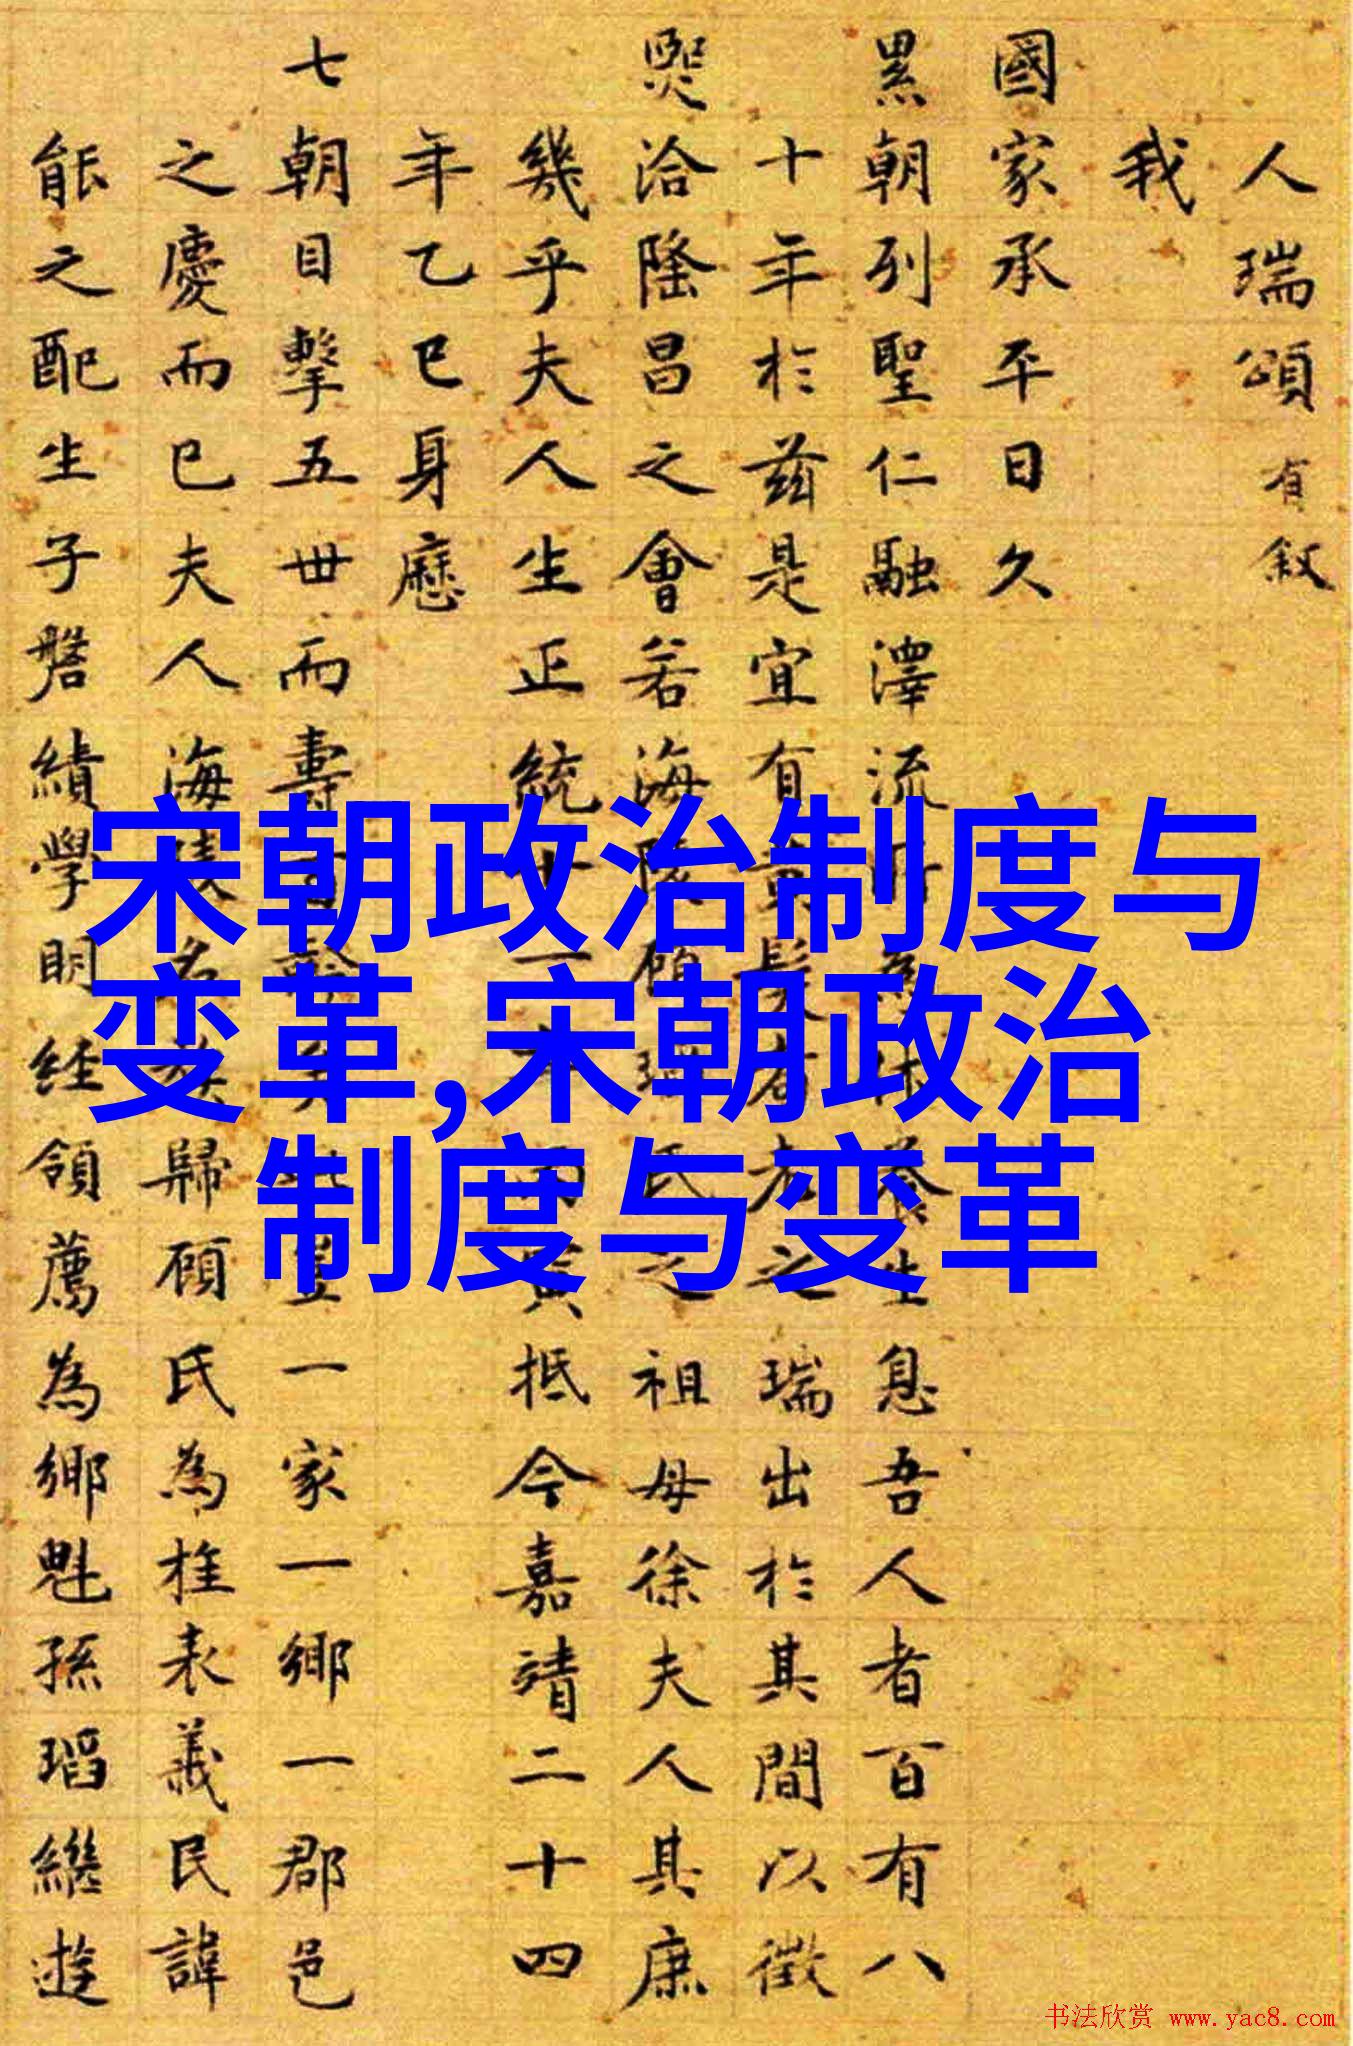 人瑞頌有叙
我
國家承平日久
累朝列聖仁融澤流涵煦休养生息吾人者百有八
十年於兹是宜有黄髮者老之瑞出於其間以徵
熙洽隆昌之會若海陵顧瑫氏之祖母徐夫人其庶
幾乎夫人生正統十一年丙寅抵今嘉靖二十四
年乙巳身歷
七朝目擊五世而壽一家一鄉一郡邑
之慶而已夫人海陵名族歸顧氏為桂表義民諱
能之配生子磐績學明經領薦為鄉魁孫瑫繼遊
宋朝政治制度与
变革,宋朝政治
制度与变革
书法欣赏 www.yac8.com